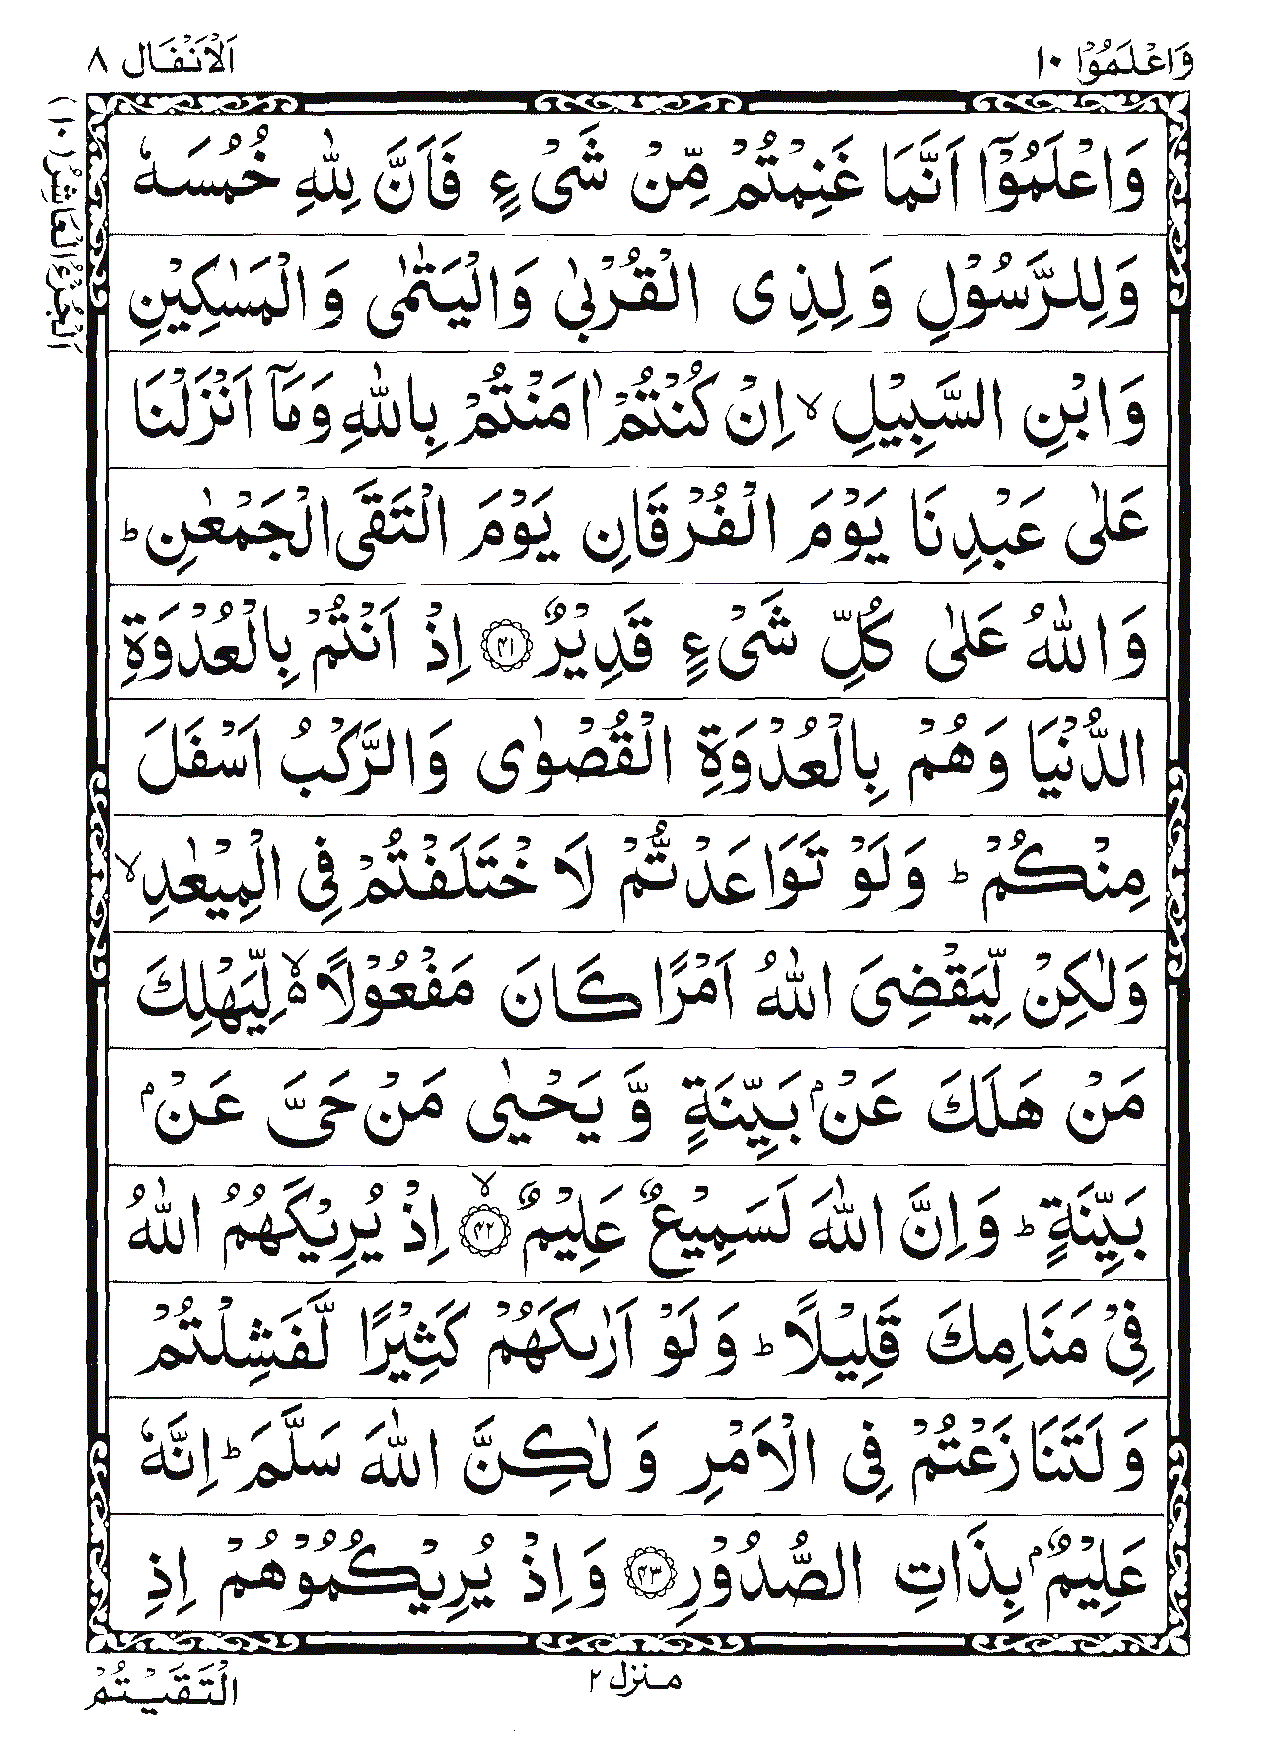 وَاعْلَمُوْا ١٠
اَلْاَنْفَال ٨
اَلْجُزْءُ الْعَاشِرُ (١٠)
وَاعْلَمُوْٓا اَنَّمَا غَنِمْتُمْ مِّنْ شَىْءٍ فَاَنَّ لِلّٰهِ خُمُسَهٗ
وَلِلرَّسُوْلِ وَ لِذِى الْقُرْبٰى وَالْيَتٰمٰى وَالْمَسٰكِيْنِ
وَابْنِ السَّبِيْلِ ۙ اِنْ كُنْتُمْ اٰمَنْتُمْ بِاللّٰهِ وَمَآ اَنْزَلْنَا
عَلٰى عَبْدِنَا يَوْمَ الْفُرْقَانِ يَوْمَ الْتَقَى الْجَمْعٰنِ ؕ
وَاللّٰهُ عَلٰى كُلِّ شَىْءٍ قَدِيْرٌ ۝۴۱ اِذْ اَنْتُمْ بِالْعُدْوَةِ
الدُّنْيَا وَهُمْ بِالْعُدْوَةِ الْقُصْوٰى وَالرَّكْبُ اَسْفَلَ
مِنْكُمْ ؕ وَلَوْ تَوَاعَدْتُّمْ لَا خْتَلَفْتُمْ فِى الْمِيْعٰدِ ۙ
وَلٰكِنْ لِّيَقْضِىَ اللّٰهُ اَمْرًا كَانَ مَفْعُوْلًا ۙ۬ لِّيَهْلِكَ
مَنْ هَلَكَ عَنْۢ بَيِّنَةٍ وَّ يَحْيٰى مَنْ حَىَّ عَنْۢ
بَيِّنَةٍ ؕ وَ اِنَّ اللّٰهَ لَسَمِيْعٌ عَلِيْمٌ ۝۴۲ ۙ اِذْ يُرِيْكَهُمُ اللّٰهُ
فِىْ مَنَامِكَ قَلِيْلًا ؕ وَ لَوْ اَرٰىكَهُمْ كَثِيْرًا لَّفَشِلْتُمْ
وَ لَتَنَازَعْتُمْ فِى الْاَمْرِ وَ لٰكِنَّ اللّٰهَ سَلَّمَ ؕ اِنَّهٗ
عَلِيْمٌۢ بِذَاتِ الصُّدُوْرِ ۝۴۳ وَ اِذْ يُرِيْكُمُوْهُمْ اِذِ
منزل ٢
الْتَقَيْتُمْ